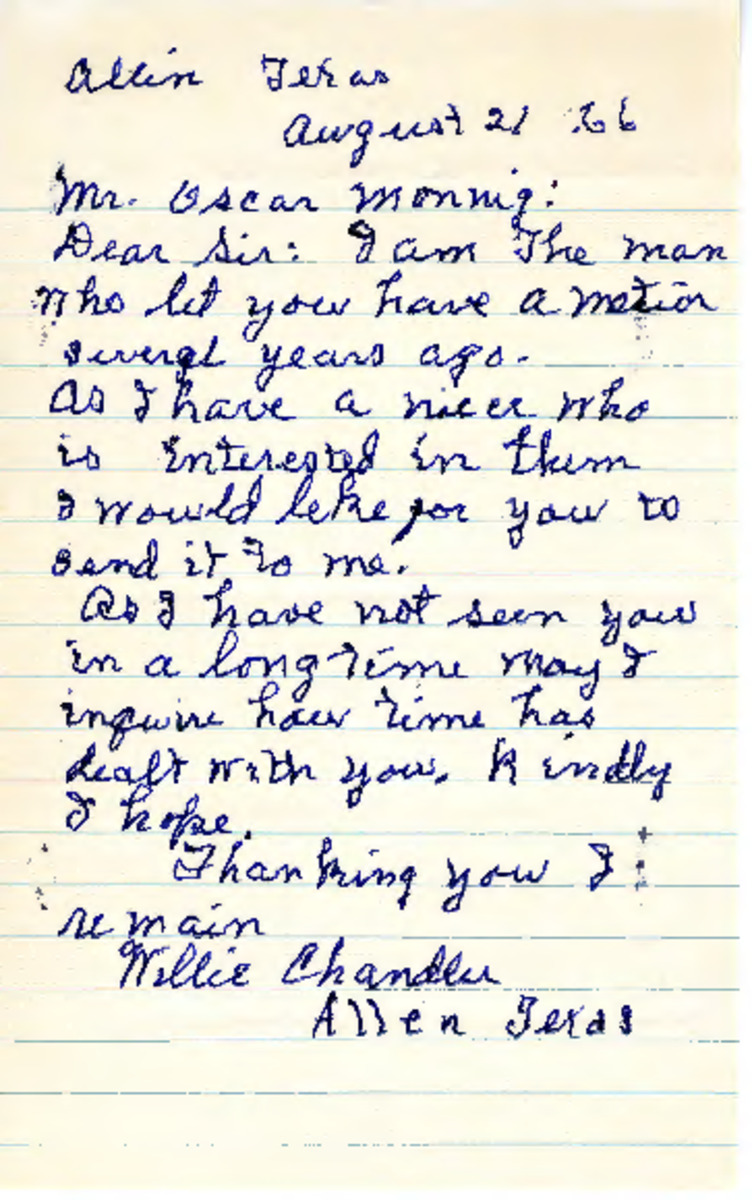 Allin Texas
August 21 .66
Mr. Oscar Monnig:
Dear Sir: I am The man
who let you have a metior
several years ago.
As I have a nicer who
is interested in them
I would like for you to
send it to me.
As I have not seen you
in a long time may I
inquire how time has
dealt with you. Kindly
I hope.
Thanking you I
remain
Willie Chandler
Allen Texas